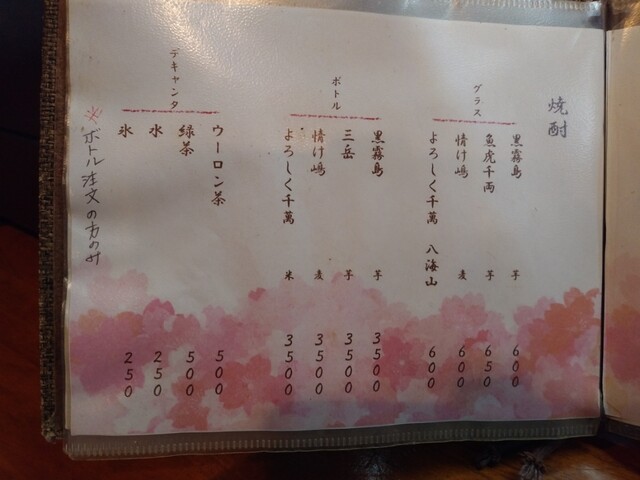 焼酎
グラス
黒霧島 芋 600
魚虎千両 芋 650
情け嶋 麦 600
よろしく千萬 八海山 600
ボトル
黒霧島 芋 3500
三岳 芋 3500
情け嶋 麦 3500
よろしく千萬 米 3500
デキャンタ
ウーロン茶 500
緑茶 500
水 250
氷 250
※ボトル注文の方のみ